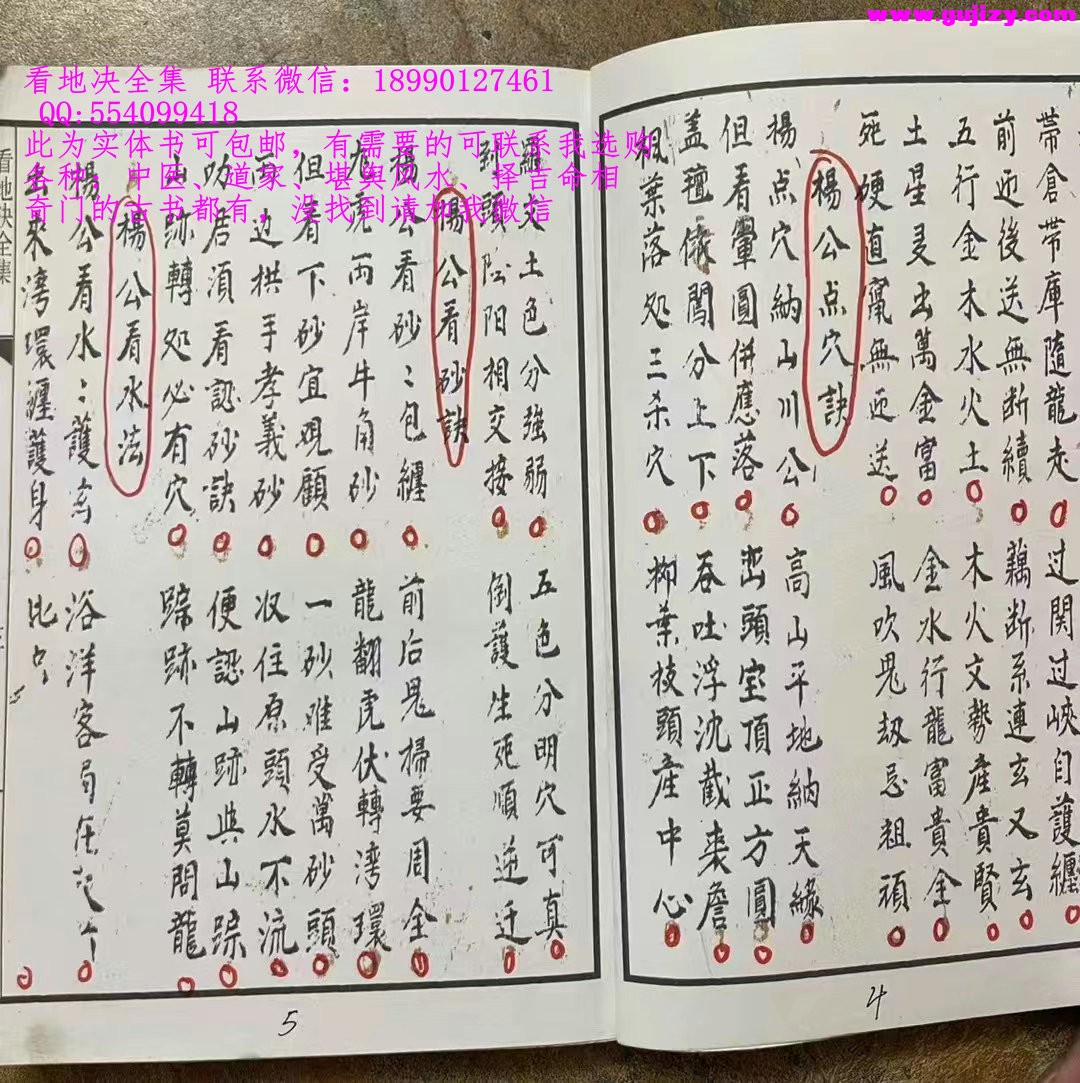 www.gujizy.com
看地决全集 联系微信：18990127461
QQ:554099418
此为实体书可包邮，有需要的可联系我选购
各种：中医、道家、堪舆风水、择吉命相
奇门的古书都有，没找到请加我微信
帶倉帶庫隨龍走 过関过峽自護纏
前迎後送無断續 藕断系連玄又玄
五行金木水火土 木火文勢產貴賢
土星旻出萬金富 金水行龍富貴金
死硬直窜無迎送 風吹鬼刼忌祖頑
楊公点穴訣
楊公点穴納山川 高山平地納天緣
但看暈圓併應落 巒頭室頂正方圓
蓋 儀閙分上下 吞吐浮沈截裘詹
楓葉落处三杀穴 柳葉枝頭產中心
羅文土色分強弱 五色分明穴可真
到頭陰阳相交接 倒護生死順逆迁
楊公看砂訣
楊公看砂〻包纏 前后鬼掃要周全
龙虎两岸牛角砂 龍翻虎伏轉湾環
但看下砂宜覌顧 一砂难受萬砂頭
边拱手孝義砂 收住原頭水不流
居須看認砂訣 便認山跡與山踪
山跡轉处必有穴 踪跡不轉莫問龍
楊公看水法
楊公看水〻護 浴洋客局在
去来湾環纏護身 比
看地决全集
5
4